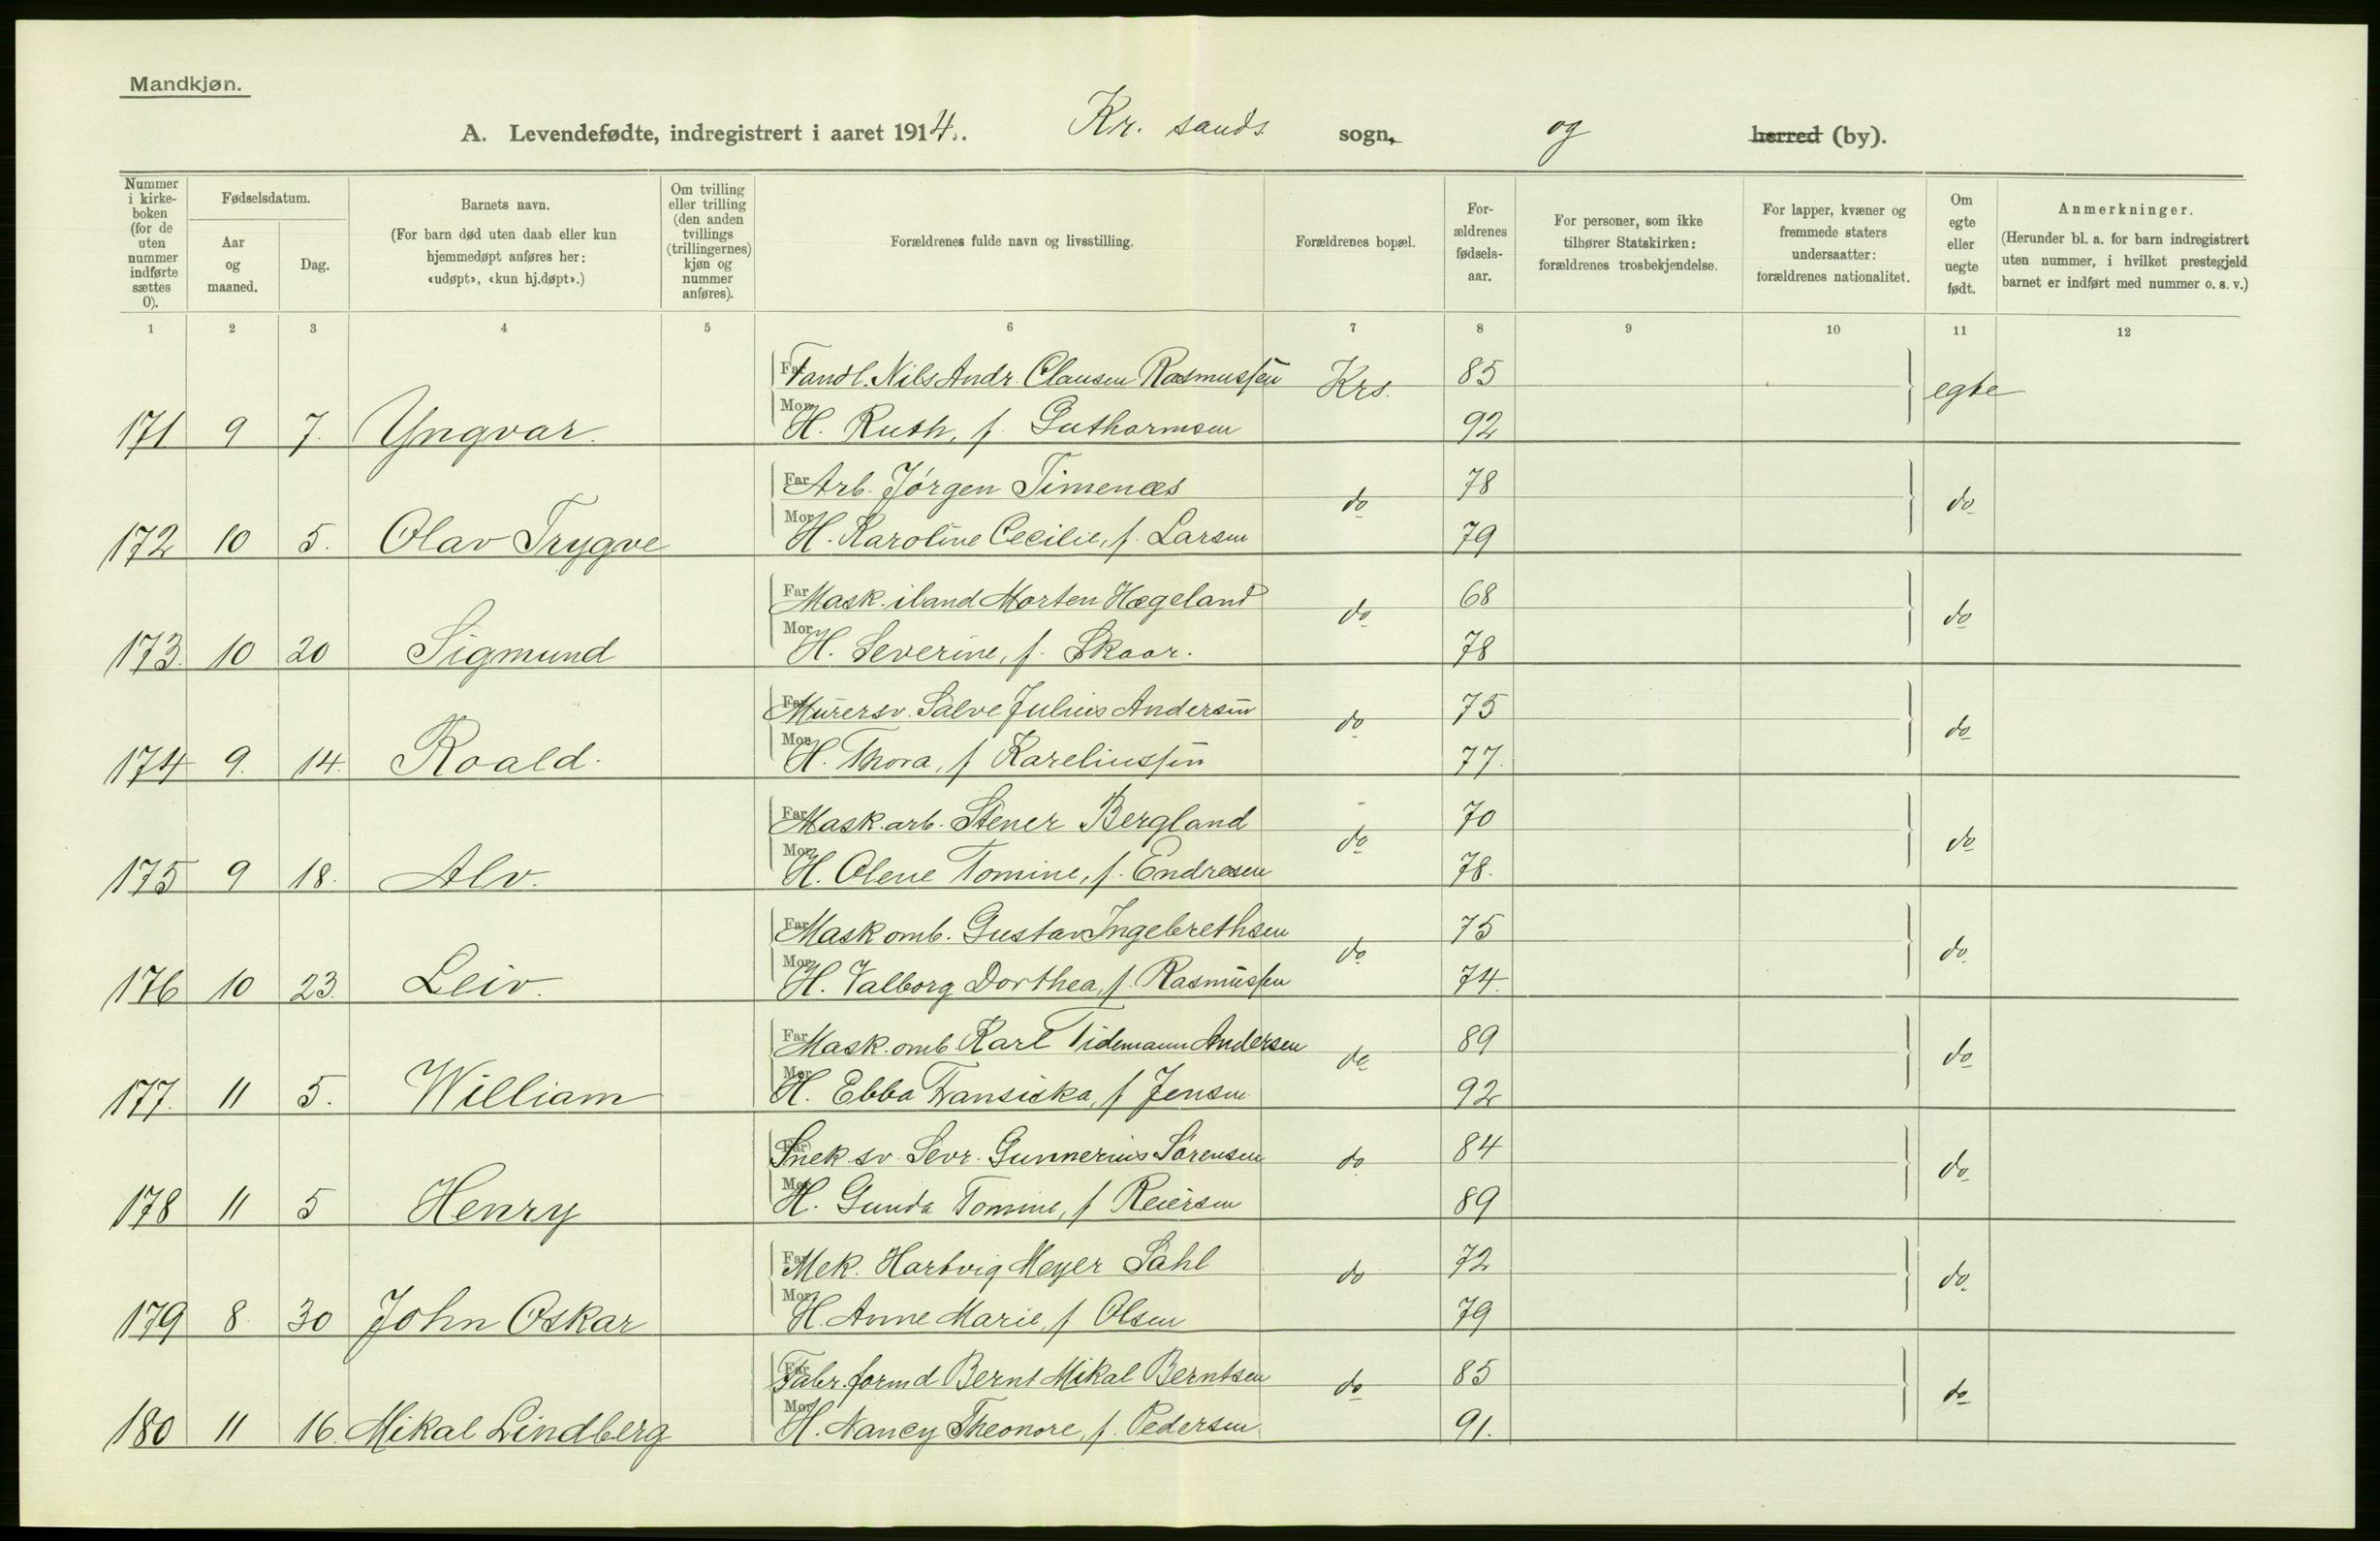 Mandkjøn.
A. Levendefødte, indregistrert i aaret 1914. Kr. sands sogn, og herred (by).
Nummer i kirkeboken (for de uten nummer indførte sættes 0).
Fødselsdatum.
Aar og maaned.
Dag.
Barnets navn.
(For barn død uten daab eller kun hjemmedøpt anføres her: «udøpt», «kun hj.døpt».)
Om tvilling eller trilling (den anden tvillings (trillingernes) kjøn og nummer anføres).
Forældrenes fulde navn og livsstilling.
Forældrenes bopæl.
Forældrenes fødselsaar.
For personer, som ikke tilhører Statskirken: forældrenes trosbekjendelse.
For lapper, kvæner og fremmede staters undersaatter: forældrenes nationalitet.
Om egte eller uegte født.
Anmerkninger.
(Herunder bl. a. for barn indregistrert uten nummer, i hvilket prestegjeld barnet er indført med nummer o. s. v.)
1 2 3 4 5 6 7 8 9 10 11 12
Far Nils Andr. Clausen Rasmussen Krs. 85 egte
171 9 7. Yngvar. Mor H. Ruth, f. Guthormsen 92
Far Arb. Jörgen Timenæs do 78 do
172 10 5. Olav Trygve Mor H. Karoline Cecilie, f. Larsen 79
Far Mask. Morten Hægeland do 68 do
173. 10 20 Sigmund Mor H. Severine, f. Skaar. 78
Far Murersv. Salve Julius Andersen do 75 do
174 9. 14. Roald. Mor H. Thora, f Kareliussen 77.
Far Mask.arb. Stener Bergland do 70 do
175 9 18. Alv. Mor H. Olene Tomine, f. Endresen 78.
Far Mask omb. Gustav Ingebrethsen do 75 do
176 10 23. Leiv. Mor H. Valborg Dorthea, f. Rasmussen 74.
Far Mask. omb Karl Tidemann Andersen do 89 do
177. 11 5. William Mor H. Ebba Fransiska, f Jensen 92
Far Snek sv. Sevr. Gunnerius Sörensen do 84 do
178 11 5 Henry Mor H. Gunda Tomine, f Reiersen 89
Far Mek. Hartvig Meyer Dahl do 72 do
179 8 30 John Oskar Mor H. Anne Marie, f Olsen 79
Far Fabr. formd Bernt Mikal Berntsen do 85 do
180 11 16. Mikal Lindberg Mor H. Nancy Theonore, f. Pedersen. 91.